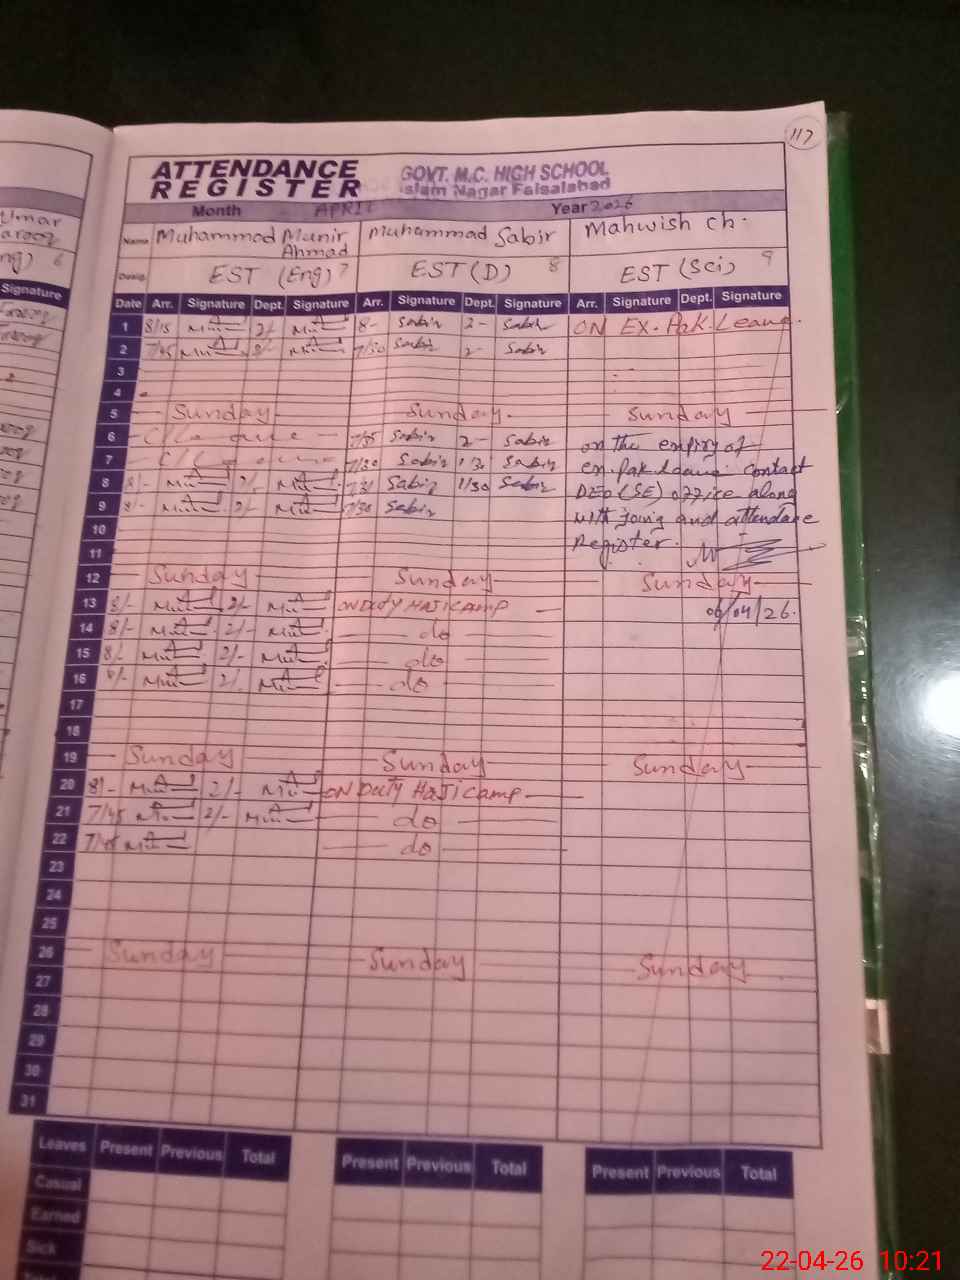 117
ATTENDANCE REGISTER
GOVT. M.C. HIGH SCHOOL
Islam Nagar Faisalabad
Month APRIL Year 2026
Umar
Name Muhammad Munir Ahmad Muhammad Sabir Mahwish Ch.
ng) 6
Desig. EST (Eng) 7 EST (D) 8 EST (Sci) 9
Signature
Date Arr. Signature Dept. Signature Arr. Signature Dept. Signature Arr. Signature Dept. Signature
1 8/15 2/- 8- Sabir 2- Sabir ON EX. Pak. Leave.
2 7/45 2/- 7/30 Sabir 2- Sabir
3
4
5 Sunday Sunday. Sunday
6 7/35 Sabir 2- Sabir on the expiry of
7 7/30 Sabir 1/30 Sabir ex. pak leave contact
8 8/- 2/- Sabir 1/30 Sabir DEO (SE) office along
9 8/- 2/- 7/30 Sabir with and attendance
10 Register.
11
12 Sunday Sunday Sunday
13 8/- 2/- ON Duty HAJI CAMP 06/04/26.
14 8/- 2/- do
15 8/- 2/- do
16 8/- 2/- do
17
18
19 Sunday Sunday Sunday
20 8/- 2/- ON Duty HAJI CAMP
21 7/45 2/- do
22 7/45 do
23
24
25
26 Sunday Sunday Sunday
27
28
29
30
31
Leaves Present Previous Total Present Previous Total Present Previous Total
Casual
Earned
Sick
22-04-26 10:21